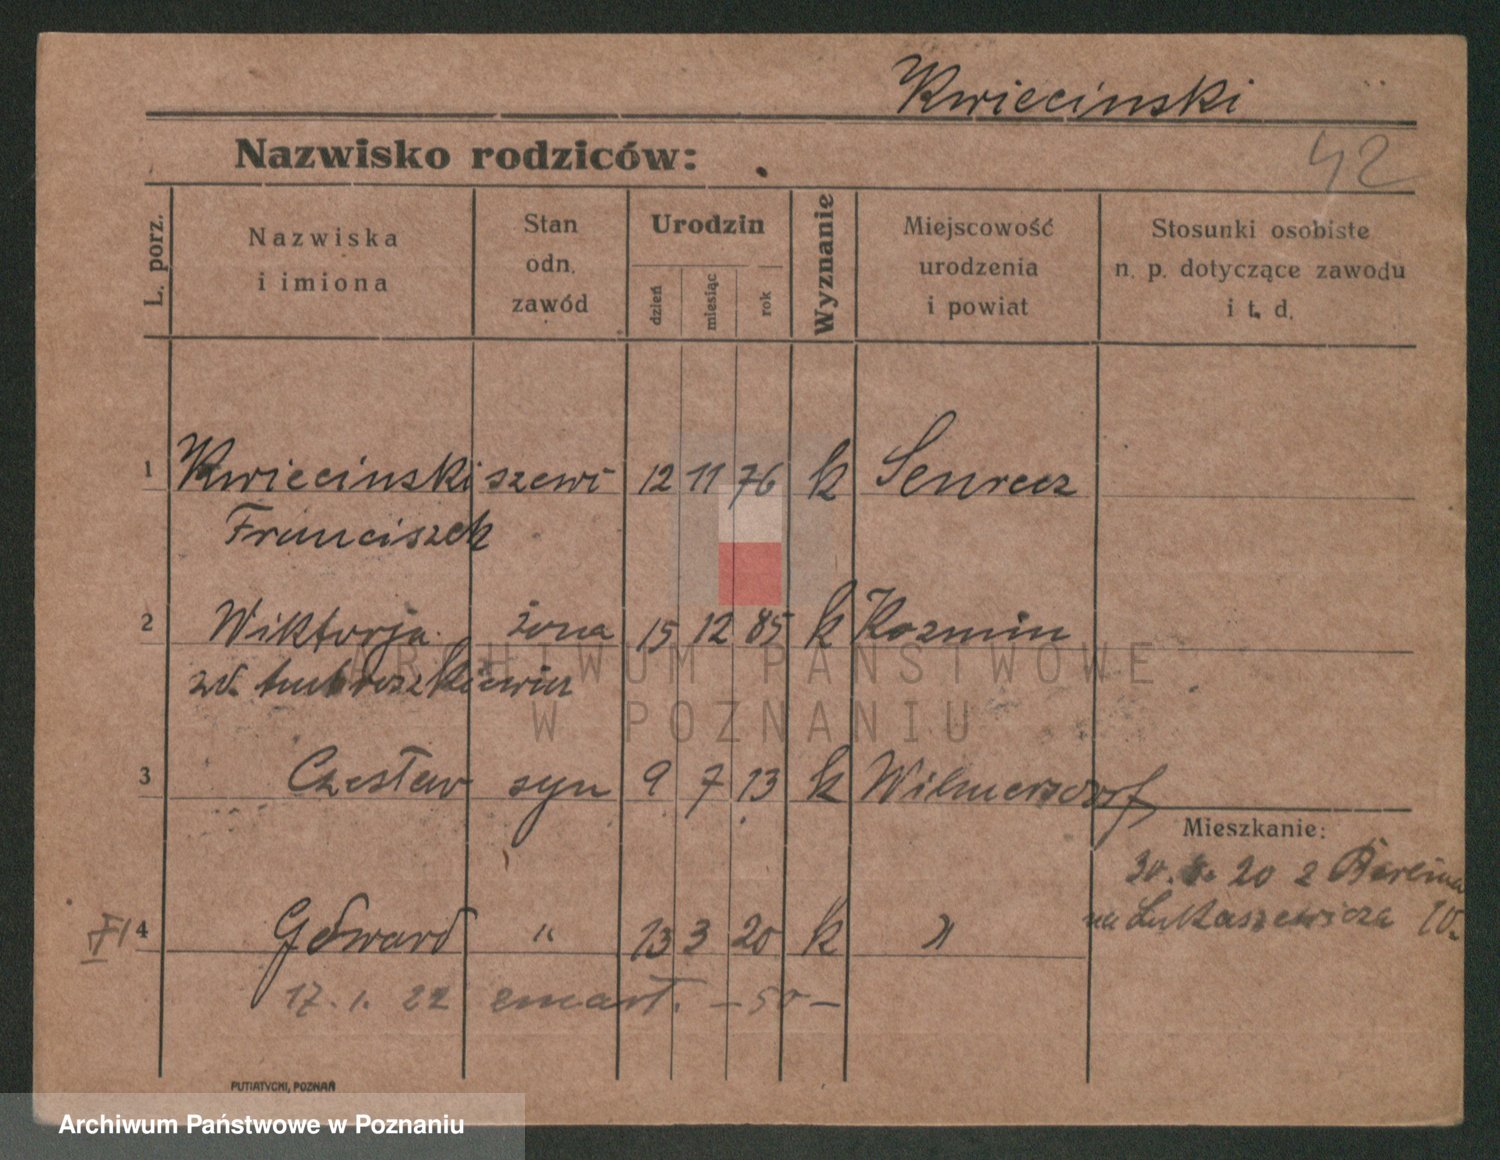 Kwiecinski
Nazwisko rodziców:
42
L. porz.
Nazwiska
i imiona
Stan
odn.
zawód
Urodzin
dzień
miesiąc
rok
Wyznanie
Miejscowość
urodzenia
i powiat
Stosunki osobiste
n. p. dotyczące zawodu
i t. d.
1 Kwiecinski szewc 12 11 76 k
Franciszek
2 Wiktorja żona 15 12 85 k Kozmin
zd.
3 Czesław syn 9 7 13 k Wilmersdorf
Mieszkanie:
20 z Berlina
na Łukaszewicza 10.
4 Edward " 13 3 20 k "
17. 1. 22 zmarł. - 50 -
PUTIATYCKI, POZNAŃ
ARCHIWUM PAŃSTWOWE
W POZNANIU
Archiwum Państwowe w Poznaniu